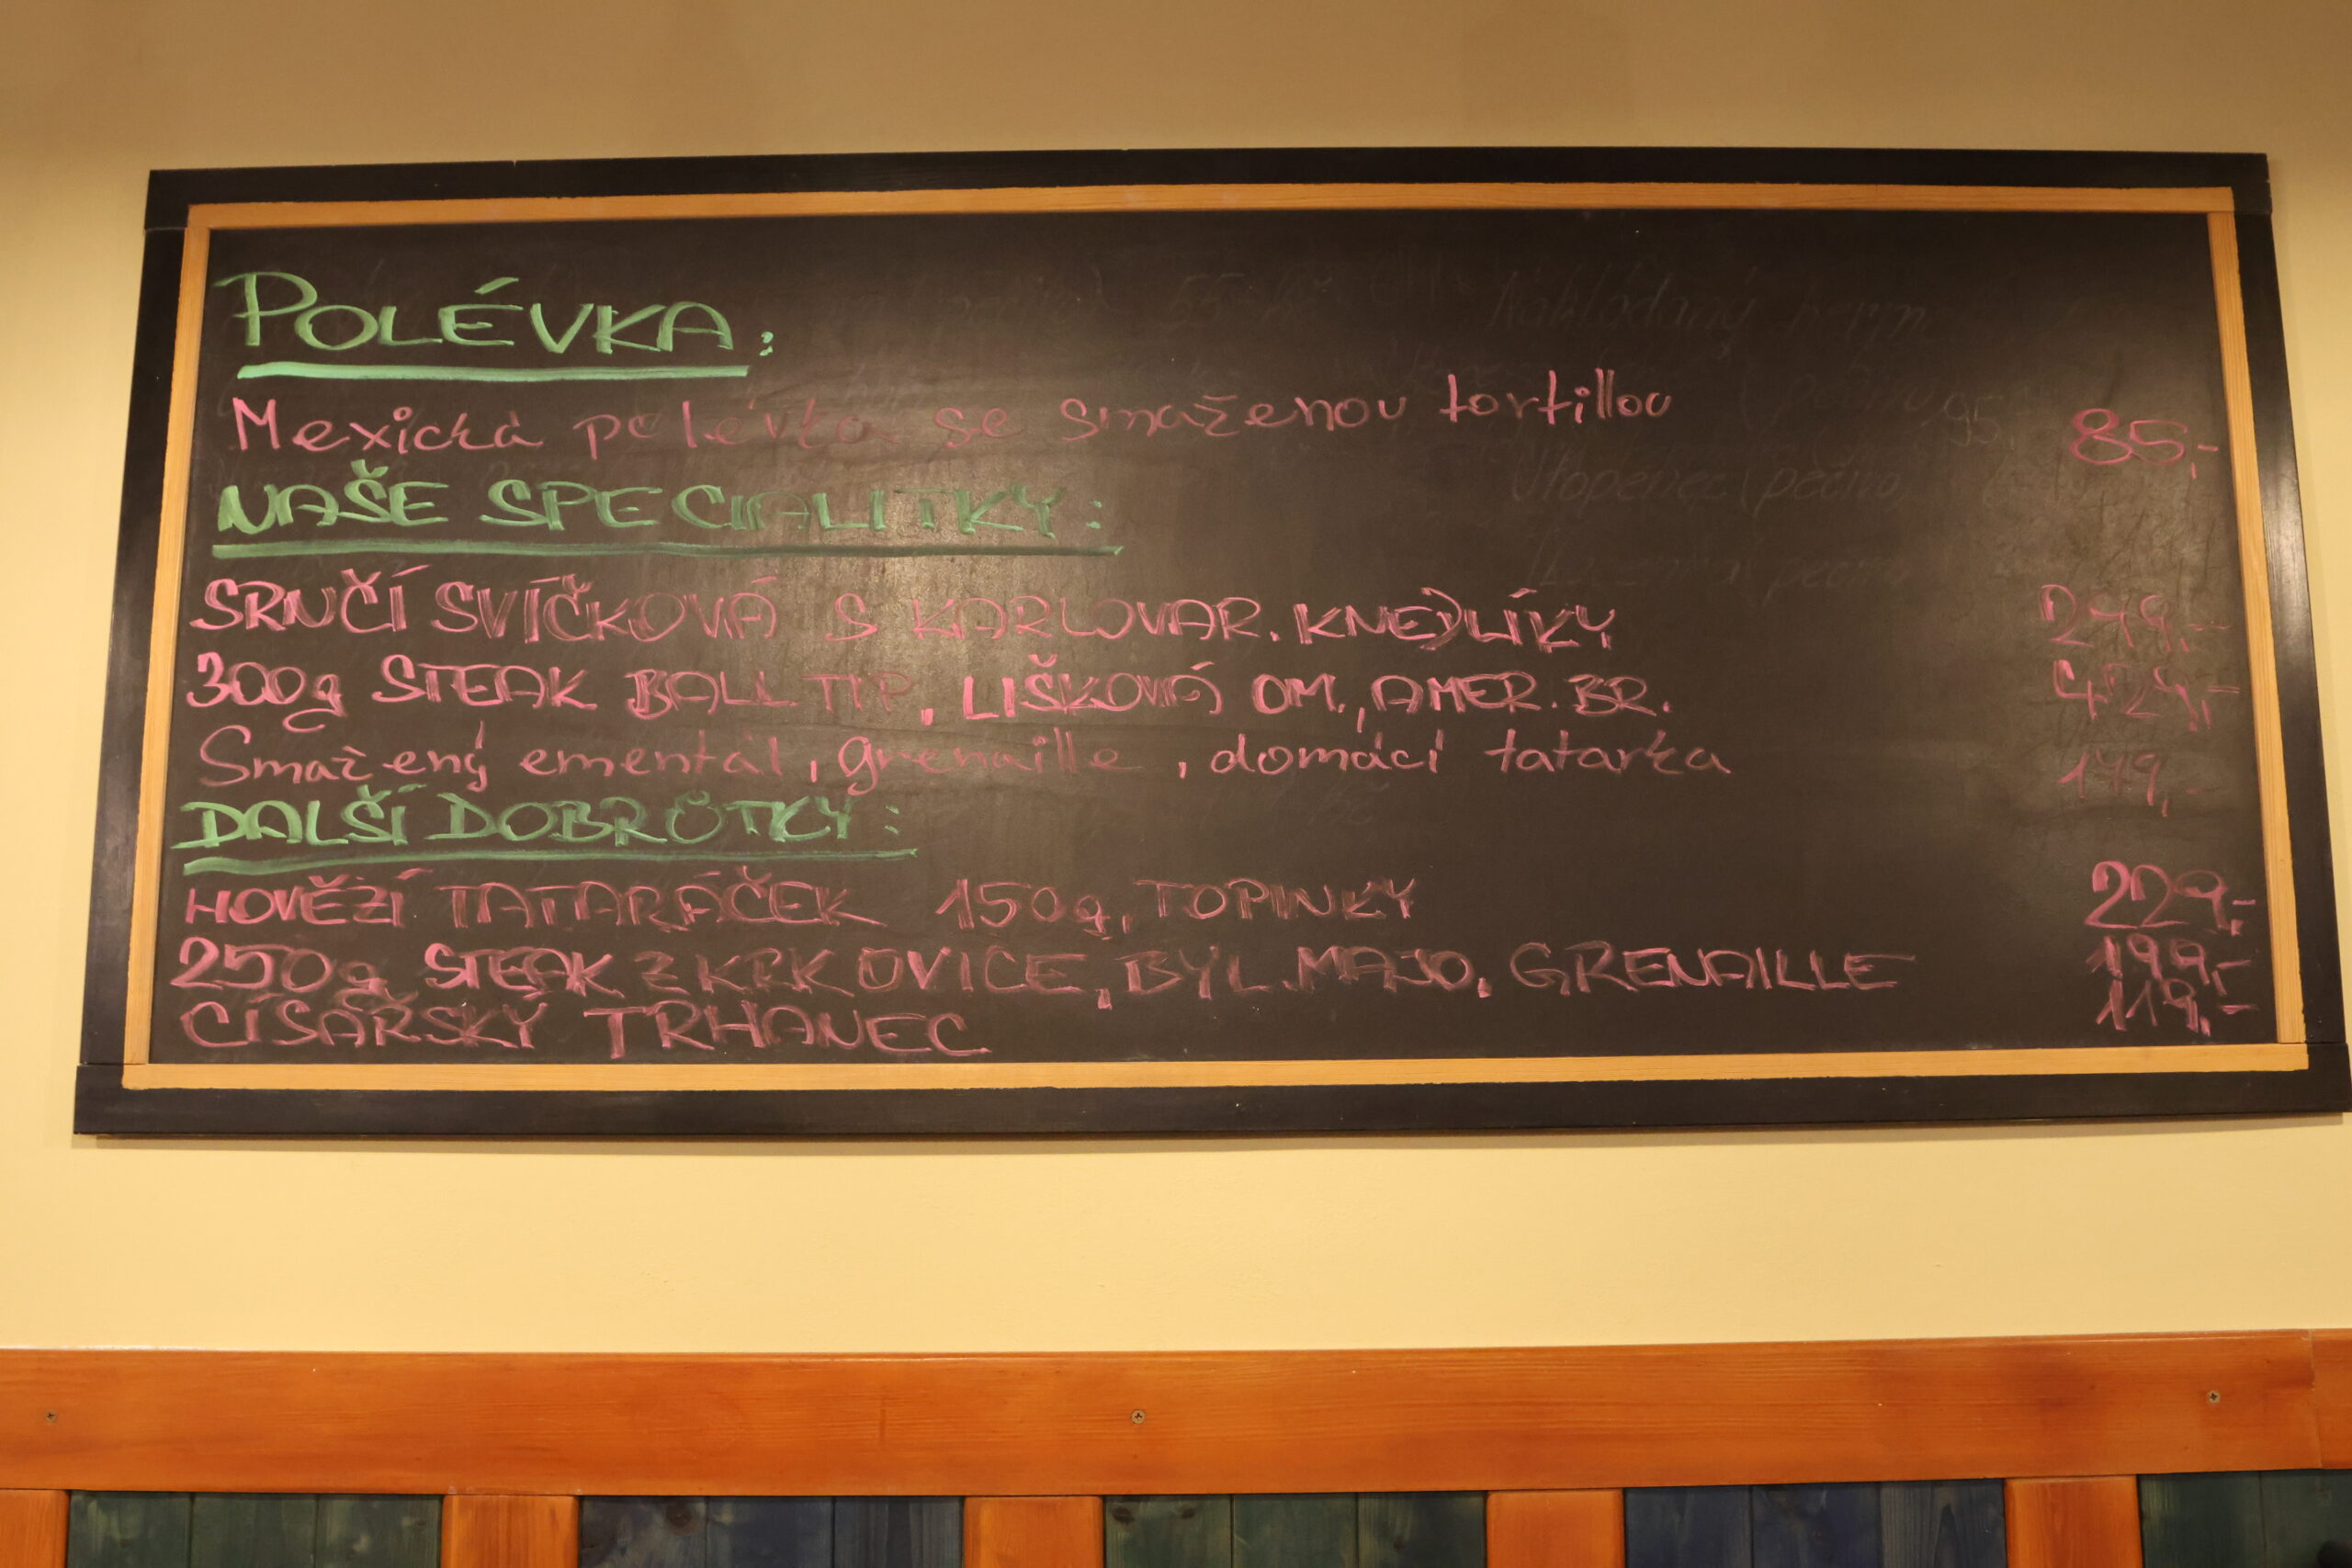 POLÉVKA:
Mexická polévka se smaženou tortillou 85,-
NAŠE SPECIALITKY:
SRNČÍ SVÍČKOVÁ S KARLOVAR. KNEDLÍKY 299,-
300g STEAK BALL TIP, LIŠKOVÁ OM., AMER. BR. 429,-
Smažený ementál, grenaille, domácí tatarka 179,-
DALŠÍ DOBRŮTKY:
HOVĚZÍ TATARÁČEK 150g, TOPINKY 229,-
250g STEAK Z KRKOVICE, BYL. MAJO, GRENAILLE 199,-
CÍSAŘSKÝ TRHANEC 119,-